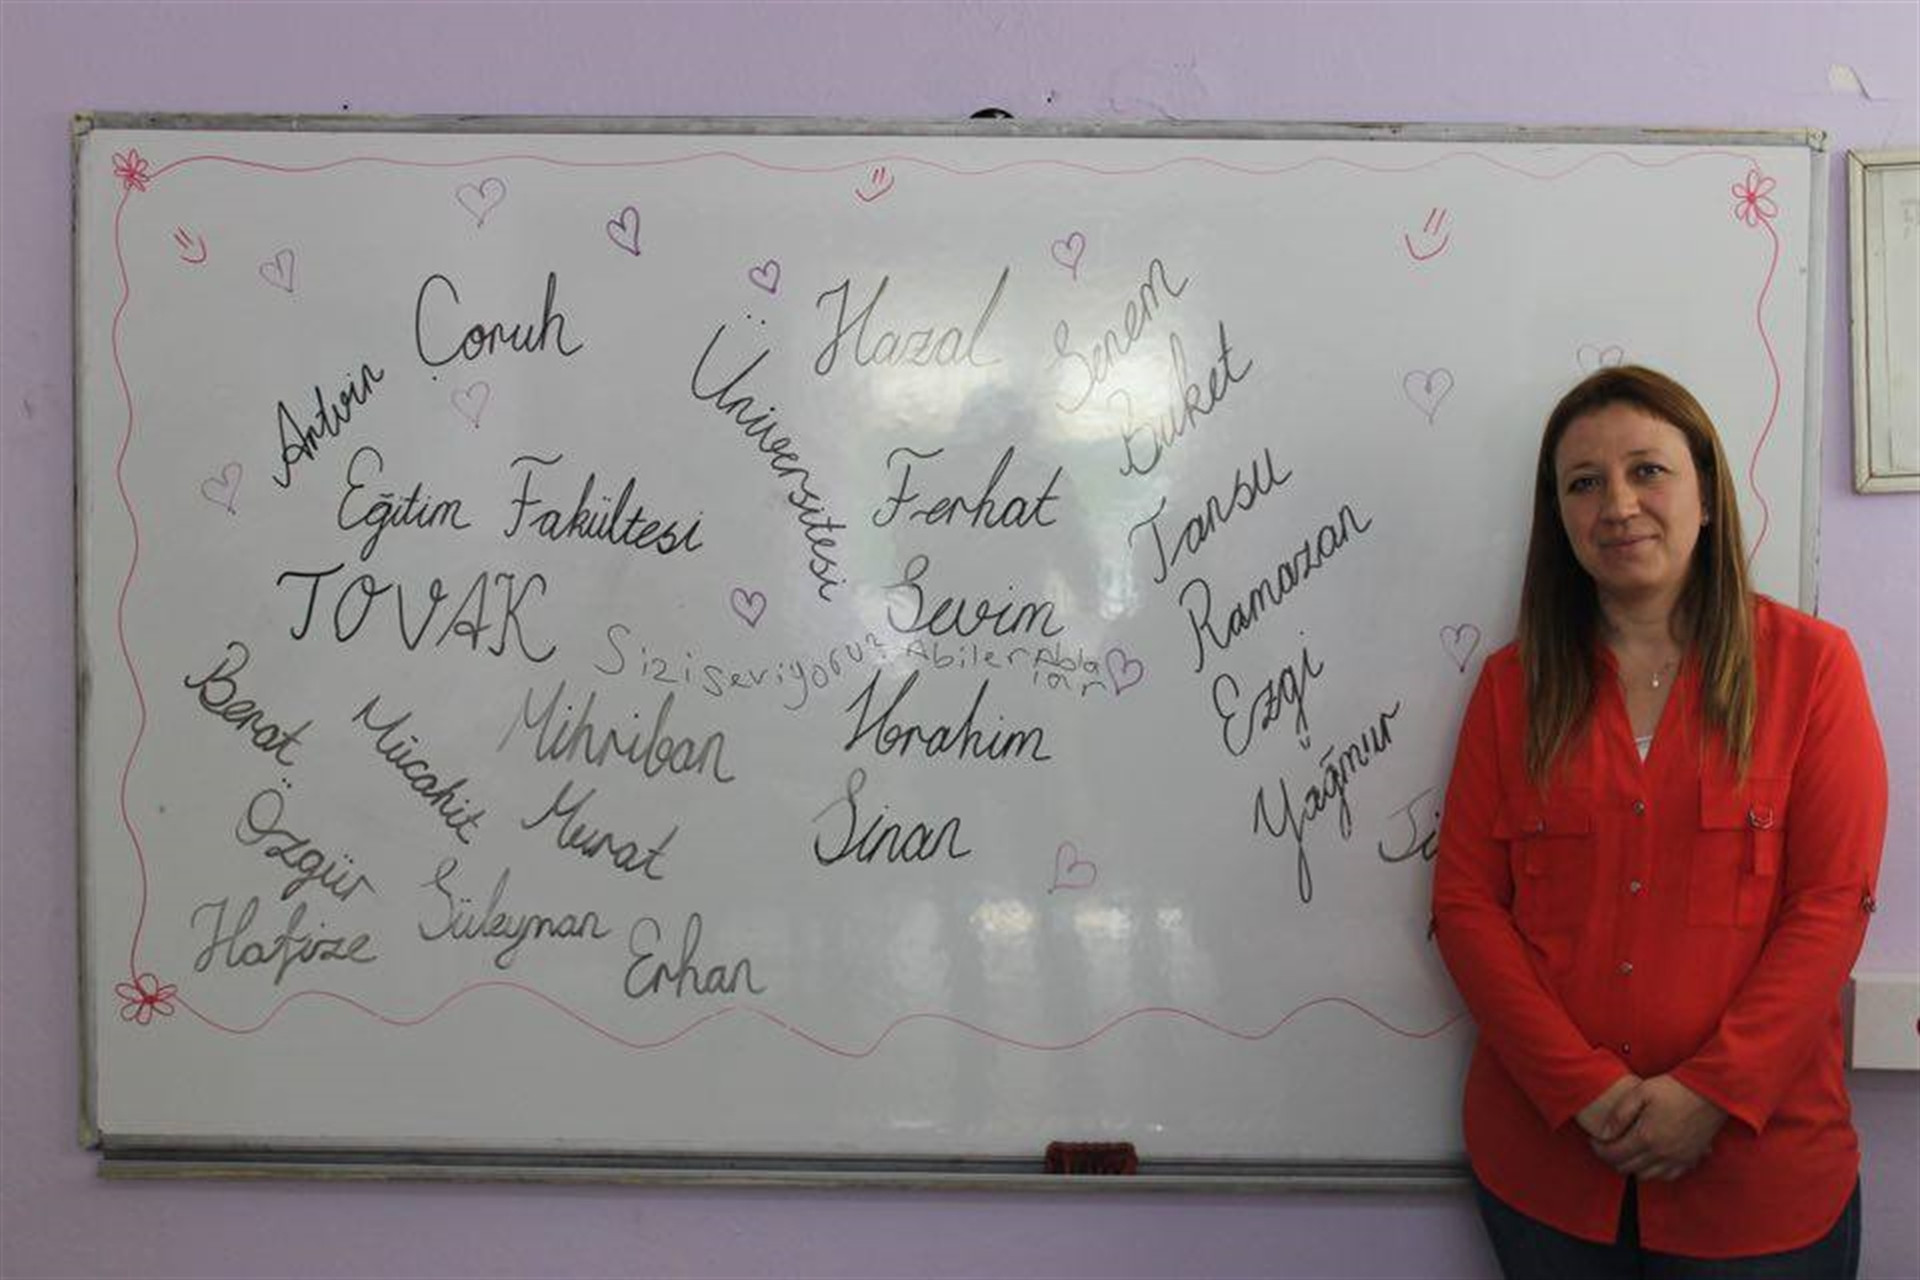 Artvin Çoruh Üniversitesi
Eğitim Fakültesi
TOVAK
Sizi seviyoruz Abiler Abla
lar
Hazal
Senem
Buket
Ferhat
Tansu
Sevim
Ramazan
Berat
Mücahit
Mihriban
İbrahim
Ezgi
Yağmur
Özgür
Murat
Sinan
Hafize
Süleyman
Erhan